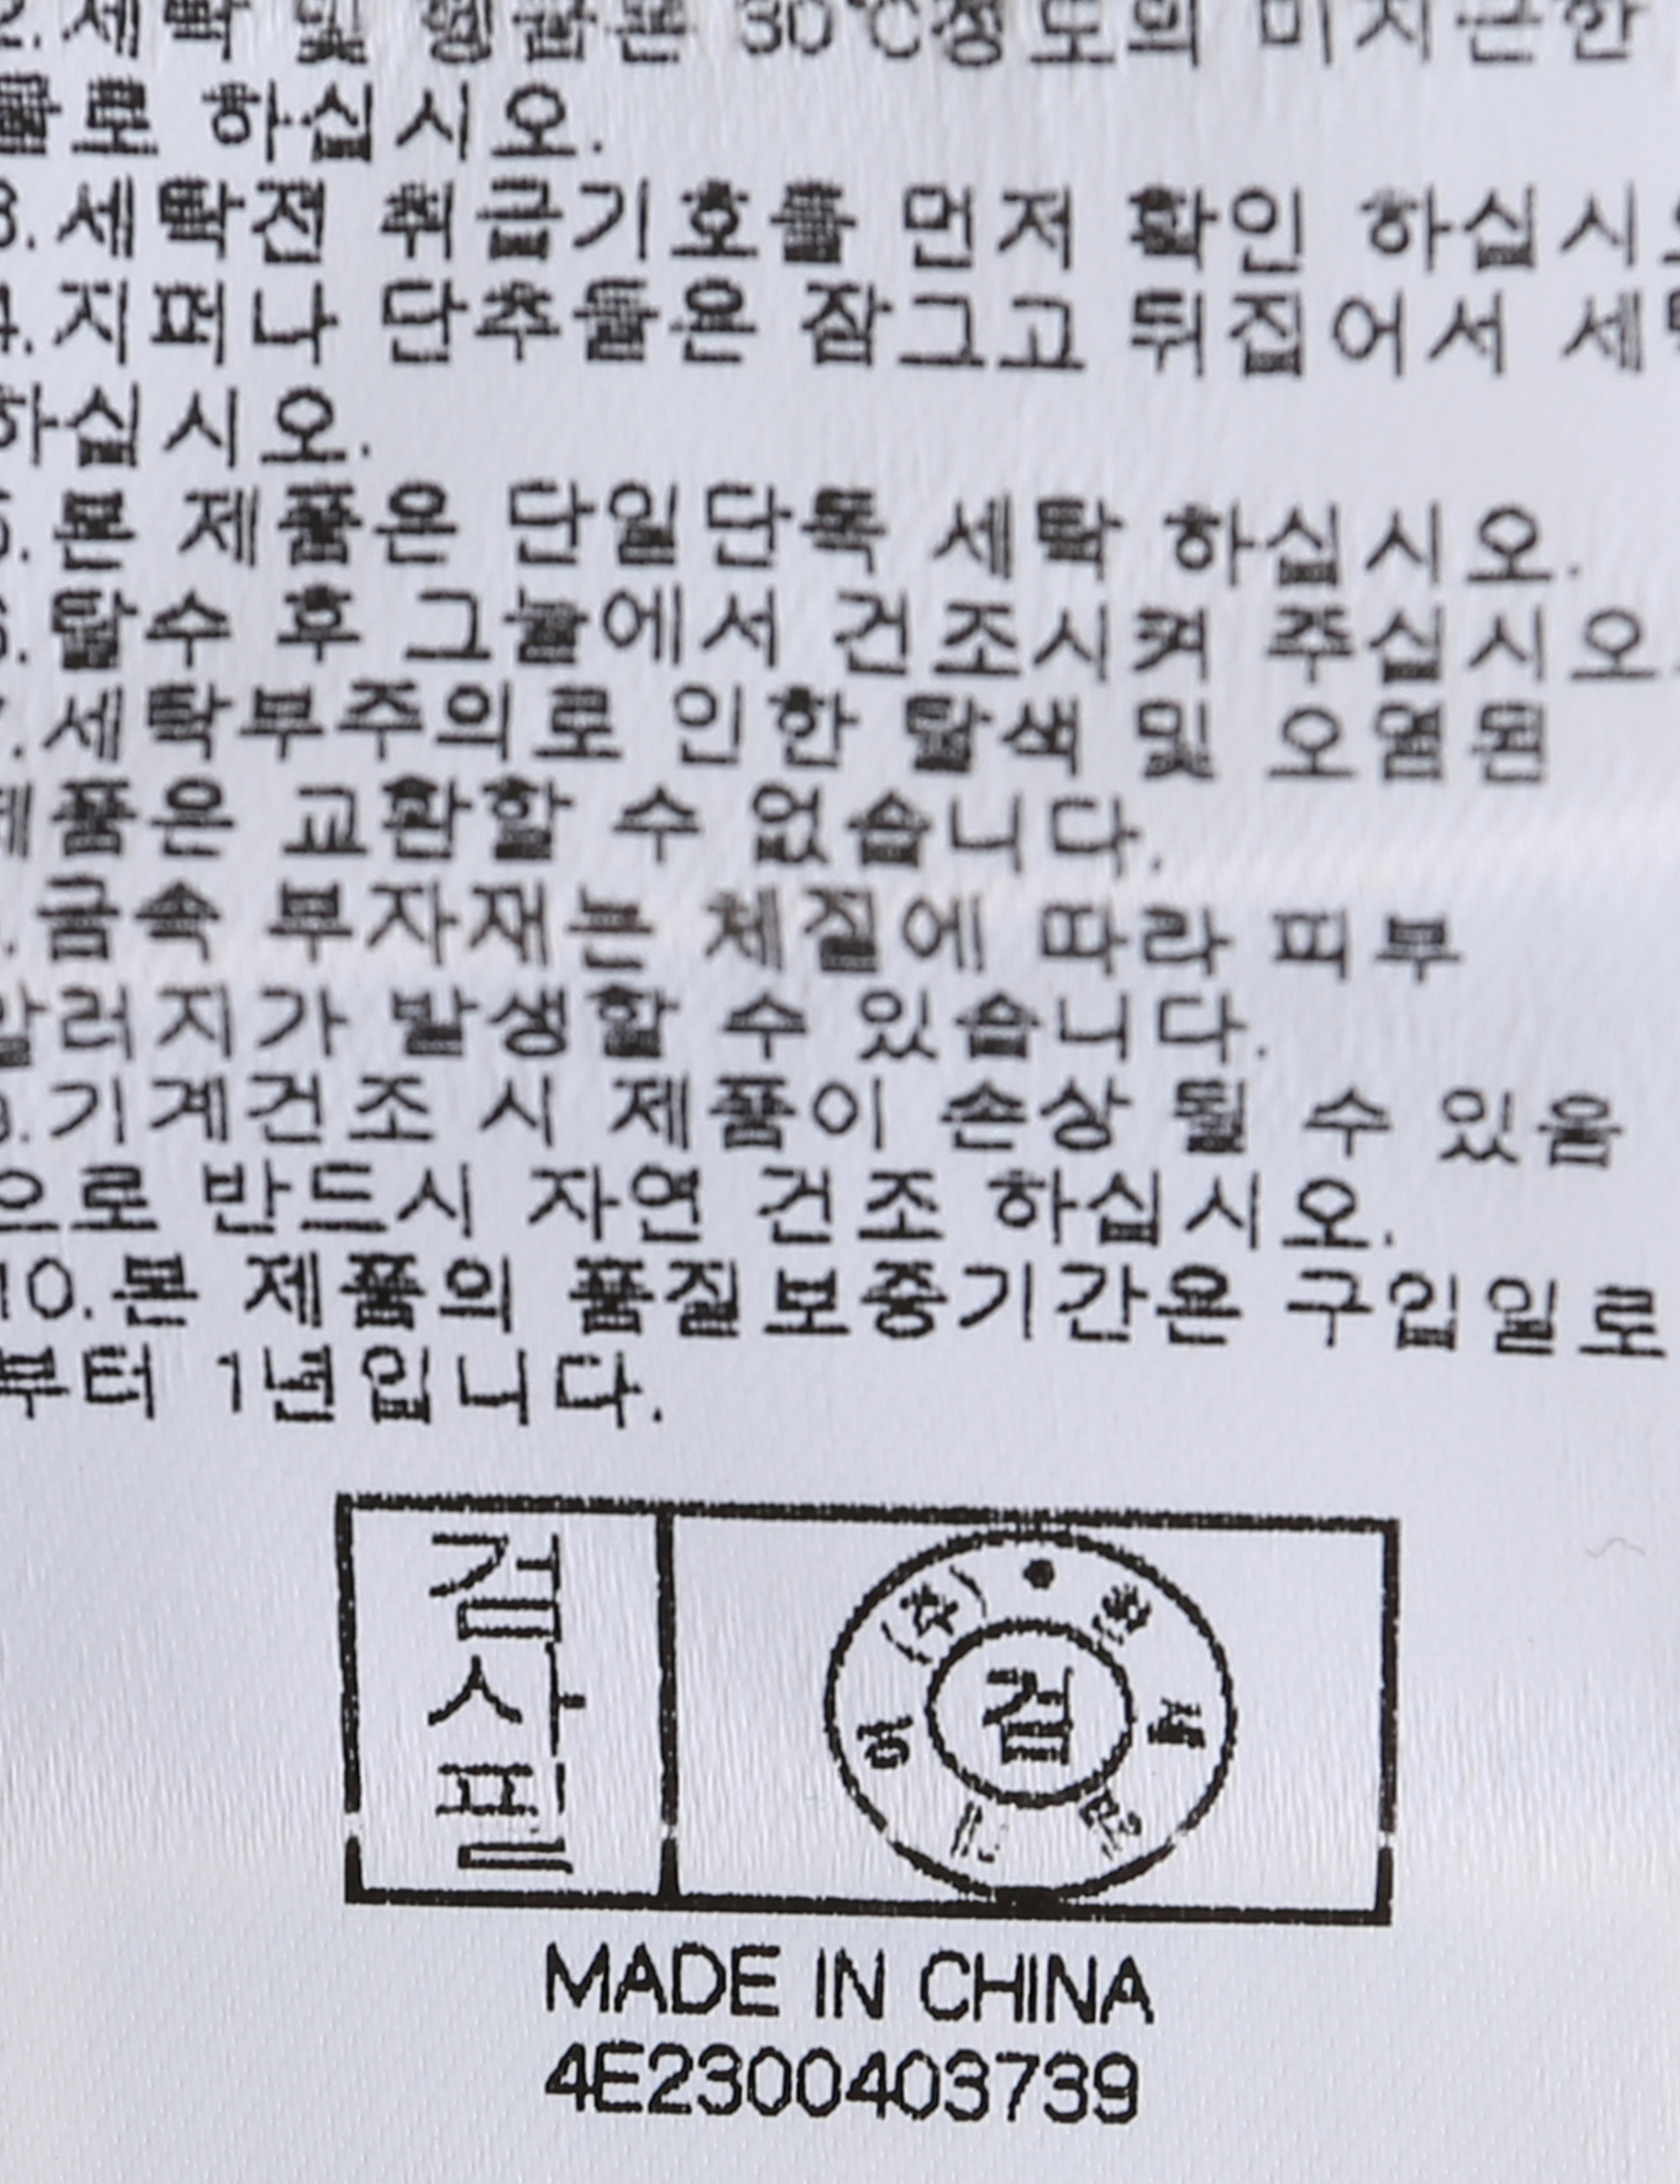 2.세탁 및 헹굼은 30℃정도의 미지근한
물로 하십시오.
3.세탁전 취급기호를 먼저 확인 하십시오
4.지퍼나 단추들은 잠그고 뒤집어서 세탁
하십시오.
5.본 제품은 단일단독 세탁 하십시오.
6.탈수 후 그늘에서 건조시켜 주십시오.
7.세탁부주의로 인한 탈색 및 오염된
제품은 교환할 수 없습니다.
.금속 부자재는 체질에 따라 피부
알러지가 발생할 수 있습니다.
9.기계건조 시 제품이 손상 될 수 있음
으로 반드시 자연 건조 하십시오.
10.본 제품의 품질보증기간은 구입일로
부터 1년입니다.
검사필
(주)
검
MADE IN CHINA
4E2300403739